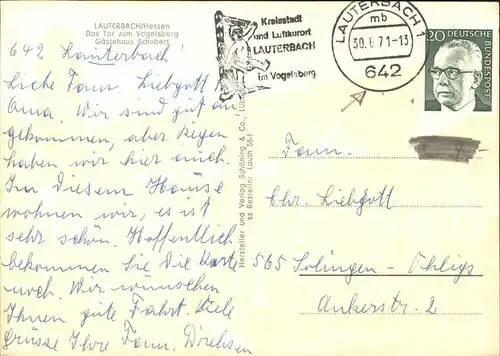 LAUTERBACH/Hessen
Das Tor zum Vogelsberg
Gästehaus Schubert
642 Lauterbach!
Liebe Fam. Liebgott
Oma. Wir sind gut an
gekommen, aber Regen
haben wir hier auch.
In diesem Hause
wohnen wir, es ist
sehr schön. Hoffentlich
bekommen Sie die Karte
noch. Wir wünschen
Ihnen gute Fahrt. Viele
grüsse Ihre Fam. Dirchsen
Hersteller und Verlag Schöning & Co.
Bestellnr. Lauth
Kreisstadt
und Luftkurort
LAUTERBACH
im Vogelsberg
LAUTERBACH 1
mb
30.6.71-13
642
20 DEUTSCHE
BUNDESPOST
Fam.
Chr. Liebgott
565 Solingen-Ohligs
Ankerstr. 2